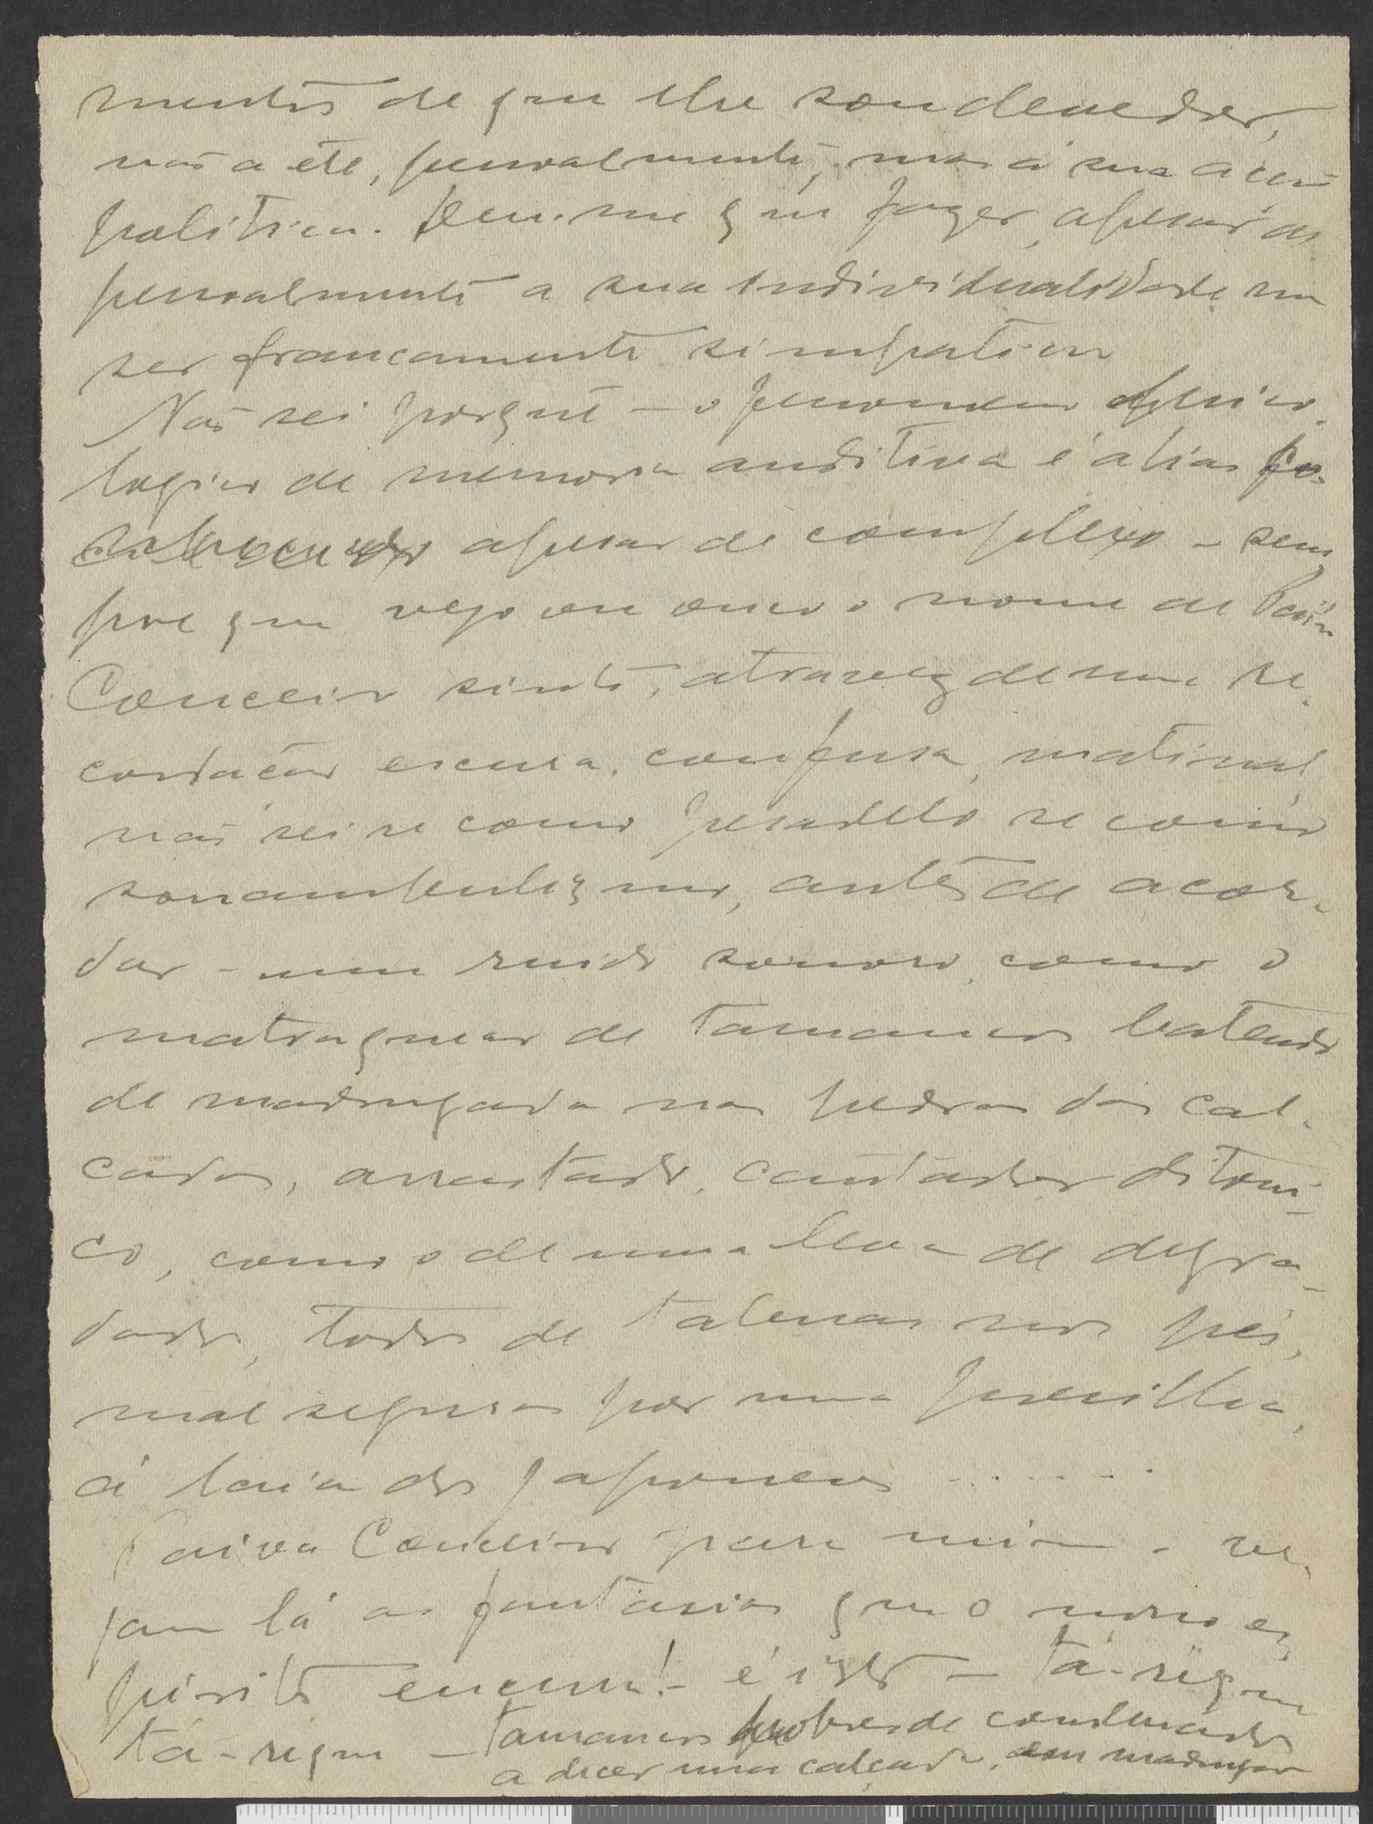 mentos de que lhe sou devedor,
não a ele, pessoalmente, mas á sua acção
politica. Deu-me que fazer, apesar de
pessoalmente a sua individualidade me
ser francamente simpatica
Não sei porquê – o fenomeno psico-
logico de memoria auditiva é aliás
apesar de complexo – sem-
pre que vejo ou ouço o nome de Paiva
Couceiro sinto, atravez de uma re-
cordação escura, confusa, matinal
não sei se como pesadelo se como
sonambulismo, antes de acor-
dar – um ruido sonoro, como o
matraquear de tamancos batendo
de madrugada nas pedras das cal-
çadas, arrastado, cantador
co, como o de uma leva de degra-
dados, todos de nos pés,
mal seguras por uma presilha,
á laia dos japonezes .......
Paiva Couceiro para mim – ve-
jam lá as fantasias que o nosso es-
pirito encerra! – é isto – tá-regue
tá-regue – tamancos pobres de condenados
a descer uma calçada, em madrugada